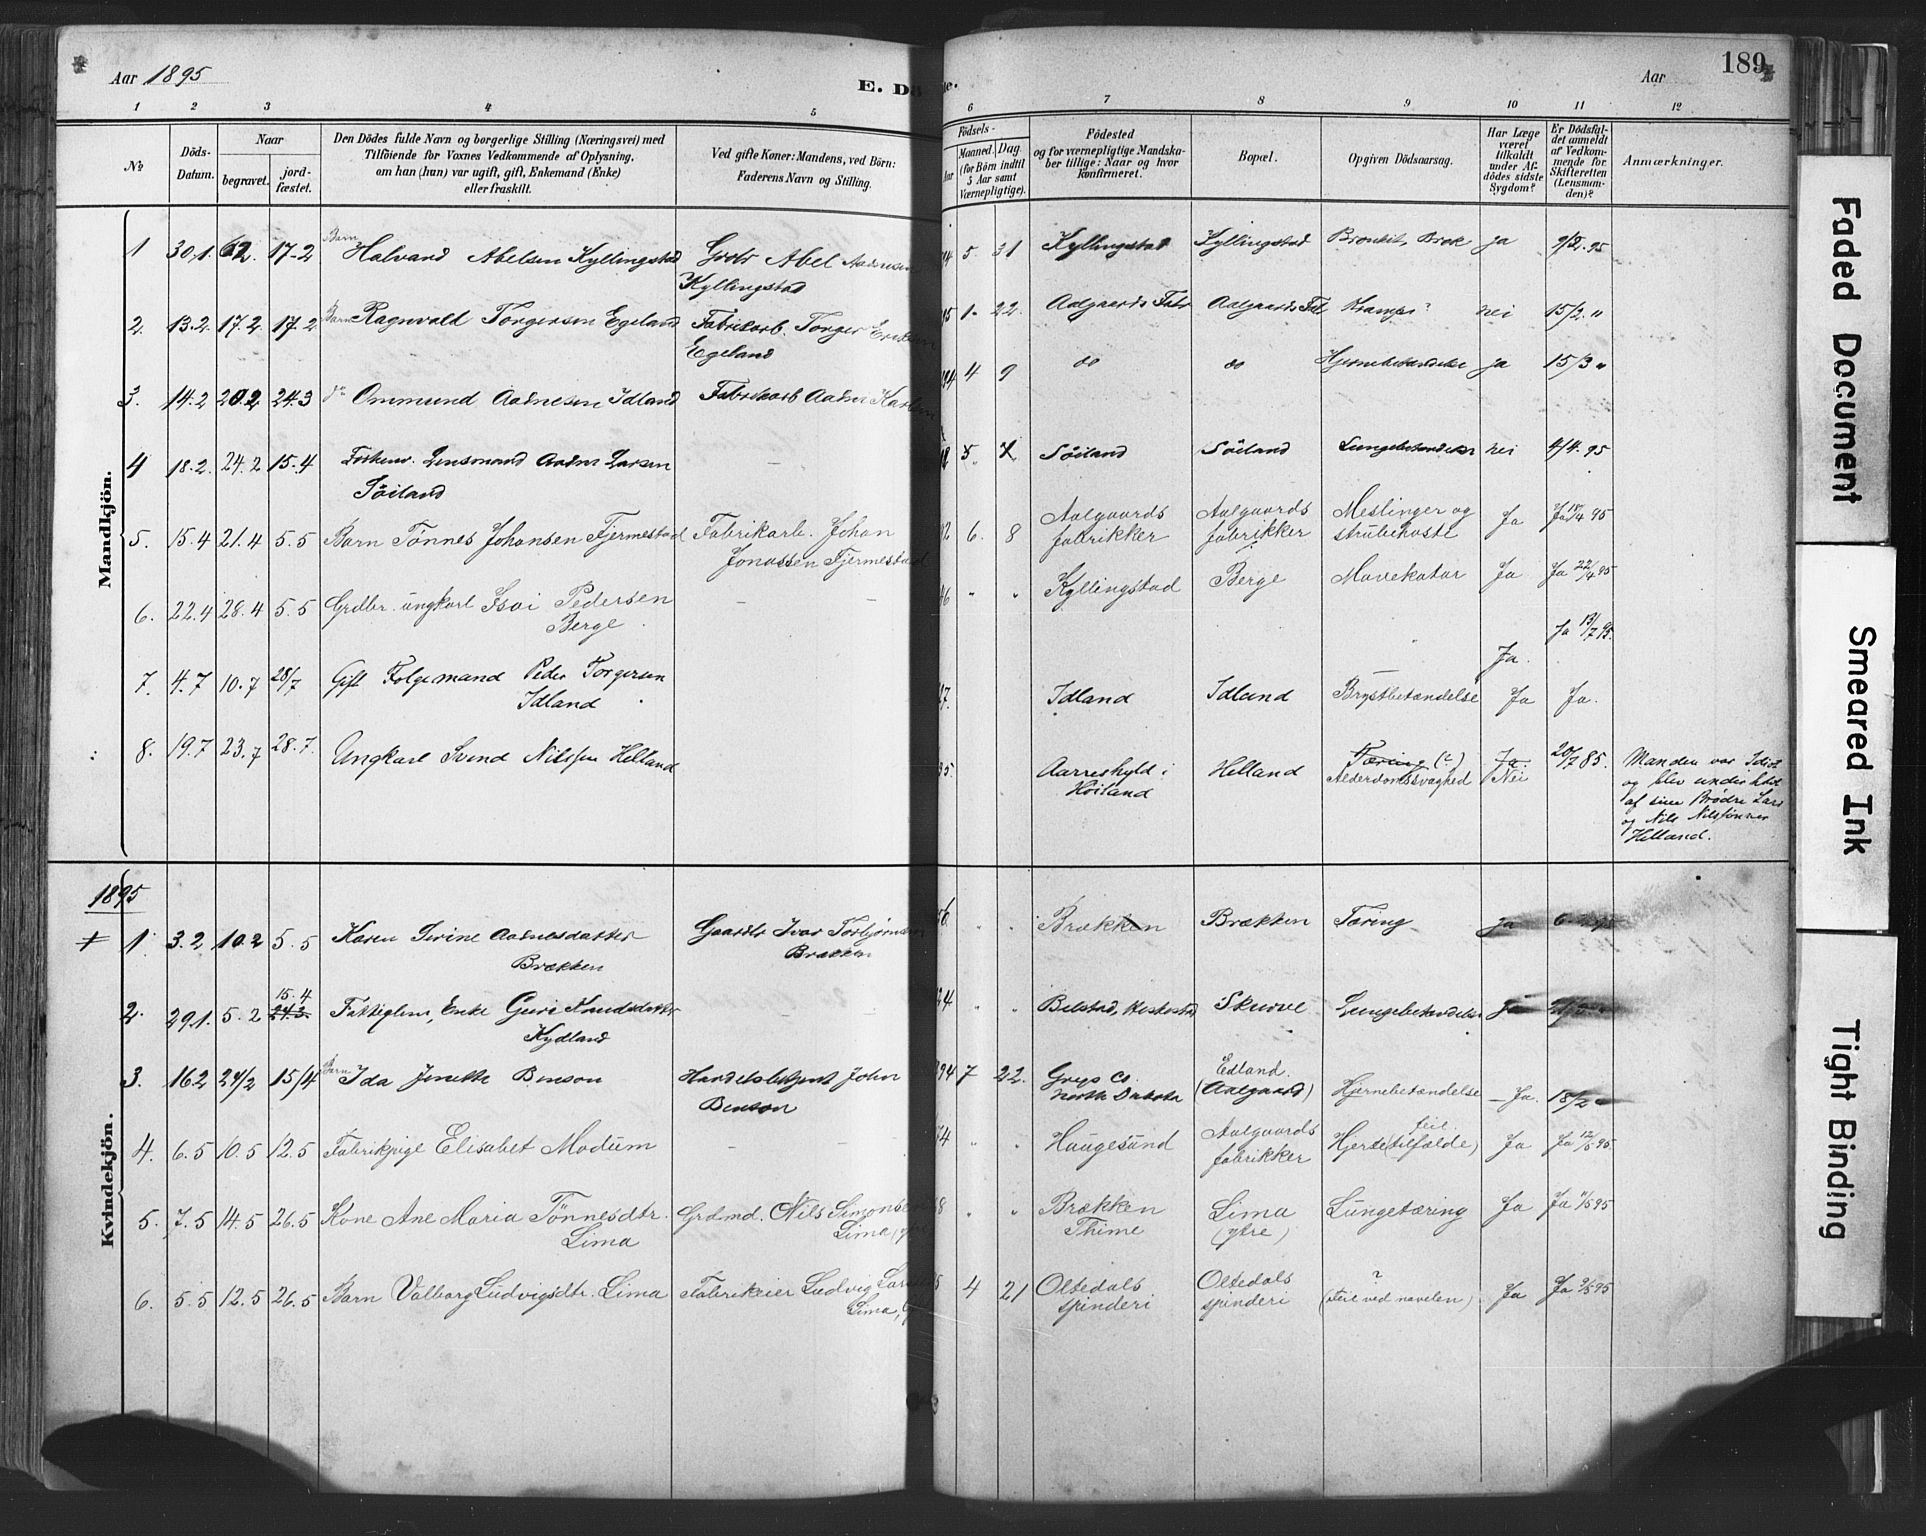 Aar 1895
E. Dø
ne.
Aar
189
1 2 3 4 5 6 7 8 9 10 11 12
No
Döds-Datum.
Naar
begravet.
jord-fæstet.
Den Dödes fulde Navn og borgerlige Stilling (Næringsvei) med
Tilföiende for Voxnes Vedkommende af Oplysning,
om han (hun) var ugift, gift, Enkemand (Enke)
eller fraskilt.
Ved gifte Koner: Mandens, ved Börn:
Faderens Navn og Stilling.
Födsels-
Aar Maaned. Dag.
(for Börn indtil
5 Aar samt
Værnepligtige).
Födested
og for værnepligtige Mandska-
ber tillige: Naar og hvor
konfirmeret.
Bopæl.
Opgiven Dödsaarsag.
Har Læge
været
tilkaldt
under Af-
dödes sidste
Sygdom?
Er Dödsfal-
det anmeldt
af Vedkom-
mende for
Skifteretten
(Lensman-
den)?
Anmærkninger.
Mandkjön.
1 30.1. 6 2. 17-2 Barn Halvard Abelsen Kyllingstad Grdbr Abel Aadnesen 94 5. 31 Kyllingstad Kyllingstad Bronkit, Brok ja 9/2. 95
Kyllingstad
2. 13.2. 17.2. 17.2 Barn Ragnvald Torgersen Egeland Fabrikarb. Torger Eriksen 95 1- 22. Aalgaards Fabr Aalgaards Fab Krampe? nei 15/2. "
Egeland
3. 14.2 20.2 24.3 do Ommund Aadnesen Idland Fabrikarb Aadne Karlsen 94 4 9 do do Hjernebetændelse ja 15/3 "
4 18.2. 24.2 15.4 Forhenv. Lensmand Aadne Larsen - Söiland Söiland Lungebetændelse nei 4/4. 95
Söiland
5. 15.4 21.4 5.5 Barn Tönnes Johansen Fjermestad Fabrikarb. Johan 92 6. 8 Aalgaards fabrikker Aalgaards fabrikker Meslinger og strubehoste Ja Ja 18/4 95
Jonassen Fjermestad
6. 22.4 28.4 5.5 Grdbr. ungkarl Isai Pedersen - - 46 " " Kyllingstad Berge Mavekatar Ja Ja 22/4 95
Berge
Ja. Ja 13/7 95.
7. 4.7 10.7 28/7 Gift Folgemand Peder Torgersen 7. Idland Idland Brystbetændelse Ja Ja.
Idland
8. 19.7 23.7 28.7. Ungkarl Svend Nilssen Helland 35. Aarreskyld i Höiland Helland Tæring (?) Alderdomssvaghed Ja Nei 20/7 85. Manden var Idiot
og blev underholdt
af sine Brödre Lars
og Nils Nilsönner
Helland.
1895
Kvindekjön.
+ 1. 3.2 10.2 5.5 Karen Serine Aadnesdatter Gaardbr Ivar Torbjörnsen 56 " " Brækken Brækken Tæring Ja
Brækken Brækken
2. 29.1. 5.2 15.4 24.3. Fattiglem, Enke Guri Knudsdatter 24 " " Belstad, Heskestad Skurve Lungebetændelse Ja
Kydland
3. 16.2 24/2 15/4 Barn Ida Jenette Benson Handelsbetjent John 94 7 22. Grigs Co. North Dakota Edland. (Aalgaard) Hjernebetændelse - Ja. 18/2
Benson
4. 6.5 10.5 12.5 Fabrikpige Elisabet Modum - - 4 " " Haugesund Aalgaards fabrikker Hjertetilfælde (feil) Ja Ja 12/5 95
5. 7.5 14.5 26.5 Kone Ane Maria Tönnesdtr. Grdmd. Nils Simonsen 8 " " Brækken Thime Lima (ytre) Lungetæring Ja Ja 11/5 95
Lima Lima, (ytre
6. 5.5 12.5 26.5 Barn Valborg Ludvigsdtr. Lima Fabrikeier Ludvig Lars 5 4 21 Oltedals spinderi Oltedals spinderi ? (Feil ved navelen) Ja Ja 9/5 95
Lima,
Faded Document
Smeared Ink
Tight Binding